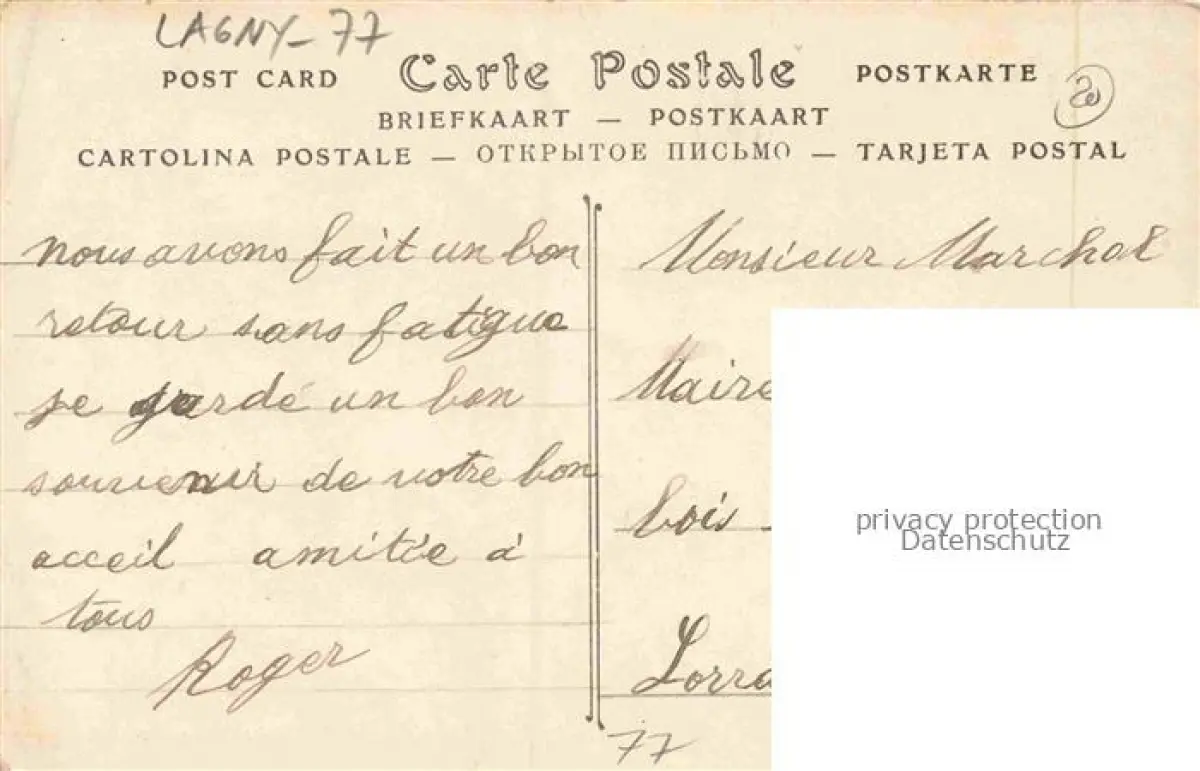 LAGNY - 77
POST CARD Carte Postale POSTKARTE
20
BRIEFKAART — POSTKAART
CARTOLINA POSTALE — ОТКРЫТОЕ ПИСЬМО — TARJETA POSTAL
nous avons fait un bon
retour sans fatigue
je garde un bon
souvenir de votre bon
acceil amitée à
tous
Roger
Monsieur Marchal
Maire
bois
Lorra
77
privacy protection
Datenschutz